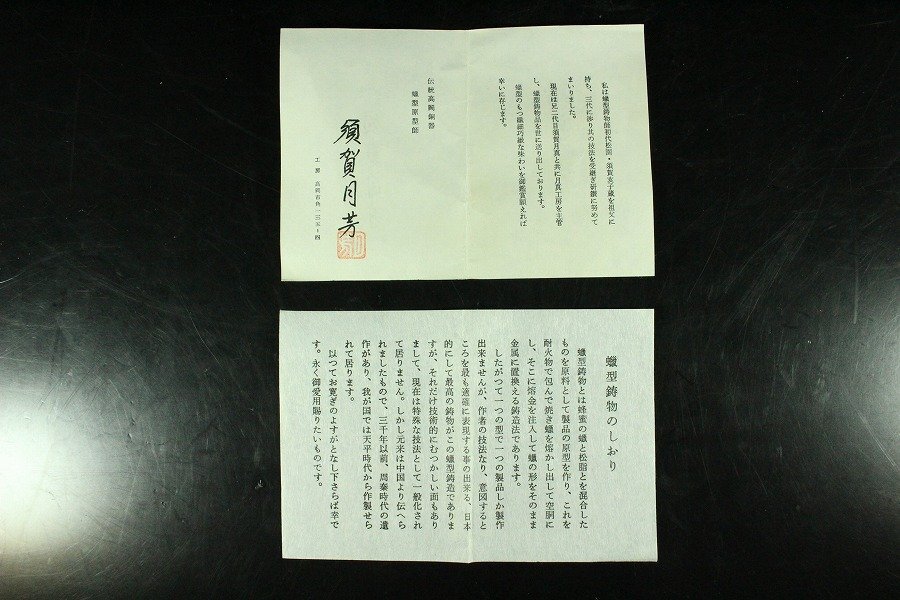 私は蠟型鋳物師初代松渕・須賀支子蔵を祖父に
持ち、三代に渉り其の技法を受継ぎ研鑽に努めて
まいりました。
現在は兄二代目須賀月真と共に月真工房を主管
し、蠟型鋳物品を世に送り出しております。
蠟型のもつ繊細巧緻な味わいを御鑑賞願えれば
幸いに存じます。
伝統高岡銅器
蠟型原型師
須賀月芳
工房 高岡市角一三五ー四
蠟型鋳物のしおり
蠟型鋳物とは蜂蜜の蠟と松脂とを混合した
ものを原料として製品の原型を作り、これを
耐火物で包んで焼き蠟を熔かし出して空胴に
し、そこに熔金を注入して蠟の形をそのまま
金属に置換える鋳造法であります。
したがつて一つの型で一つの製品しか製作
出来ませんが、作者の技法なり、意図すると
ころを最も適確に表現する事の出来る、日本
的にして最高の鋳物がこの蠟型鋳造でありま
すが、それだけ技術的にむつかしい面もあり
まして、現在は特殊な技法として一般化され
て居りません。しかし元来は中国より伝へら
れましたもので、三千年以前、周秦時代の遺
作があり、我が国では天平時代から作製せら
れて居ります。
以つてお寛ぎのよすがとなし下さらば幸で
す。永く御愛用賜りたいものです。